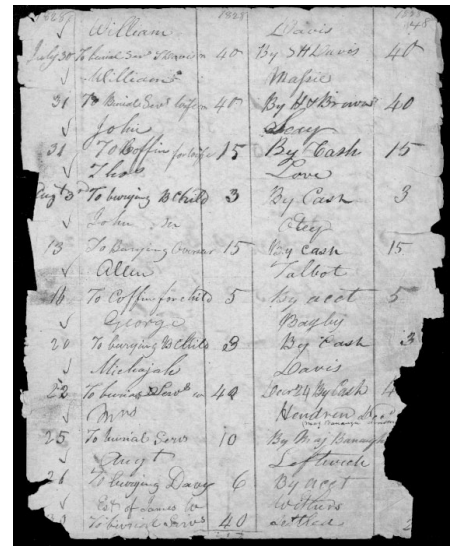 1828 1828 1828
William Davis 148
July 30 To burial Serv 40 By J H Davis 40
William Massie
31 To Burial Servs wife 40 By H & Brown 40
John Seay
31 To Coffin for wife 15 By Cash 15
Thos Love
Augt 3 To burying B Child 3 By Cash 3
John M Otey
13 To Burying 15 By Cash 15
Allen Talbot
16 To Coffin for child 5 By acct 5
George Bagby
20 To burying B Child 3 By Cash 3
Michajah Davis
22 To burial Servs 40 Decr 24 By Cash 4
Mrs Hendren Decd
25 To burial Servs 10 By Maj
Augt Leftwich
26 To burying Davy 6 By acct
Est of James W Withers
To burial Servs 40 settled